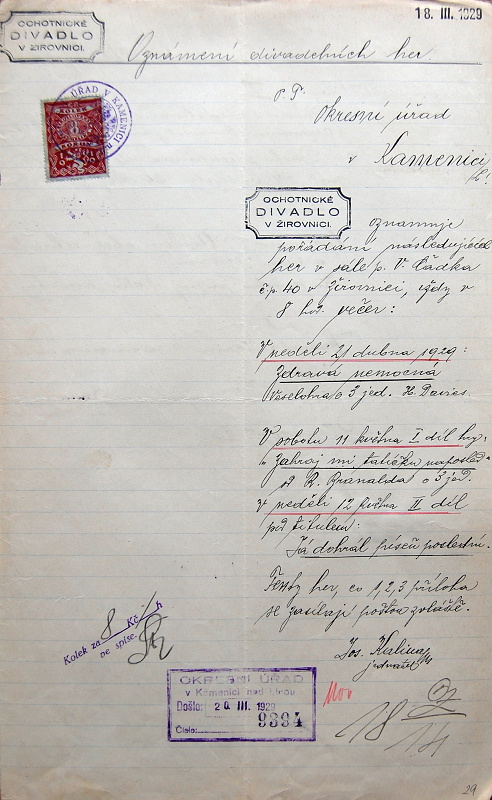 OCHOTNICKÉ
DIVADLO
V ŽIROVNICI.
18. III. 1929
Oznámení divadelních her.
P. T.
Okresní úřad
v Kamenici
n/L.
ÚŘAD V KAMENICI n
KOLEK
8
OCHOTNICKÉ
DIVADLO
V ŽIROVNICI.
oznamuje
pořádání následujících
her v sále p. V. Čádka
č.p. 40 v Žirovnici, vždy v
8 hod. večer:
V neděli 21 dubna 1929:
Zdravá nemocná
Veselohra o 3 jed. H. Davies.
V sobotu 11 května I díl hry
Zahraj mi tatíčku naposled
od R. Branalda o 3 jed.
V neděli 12 května II díl
pod titulem:
Já dohrál píseň poslední.
Texty her, co 1, 2, 3 příloha
se zasílají poštou zvláště.
Jos. Kalina
jednatel
Kolek za 8 Kč h
ve spise.
OKRESNÍ ÚŘAD
v Kamenici nad Lipou
Došlo: 20. III. 1929
Číslo: 9394
18
29